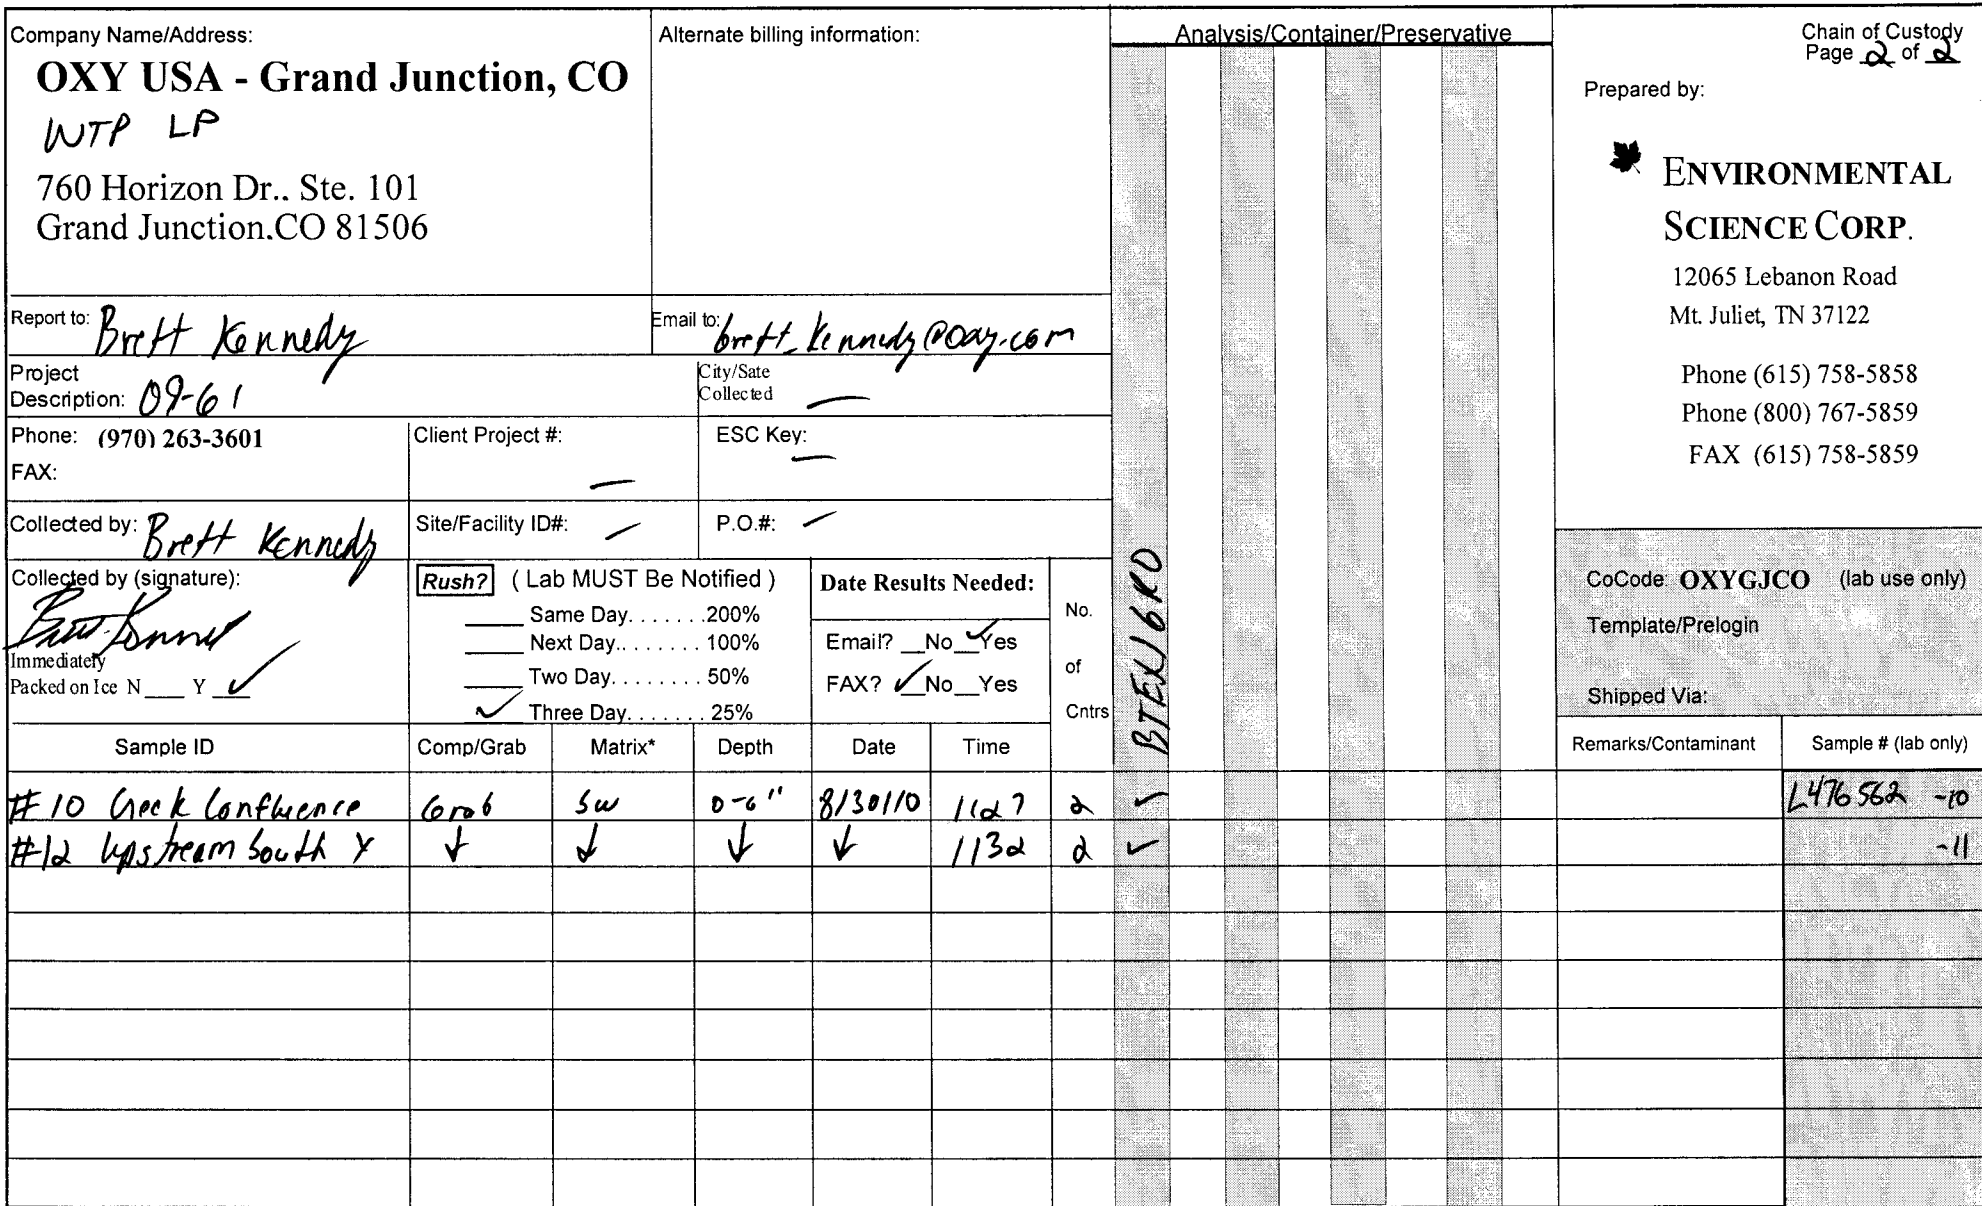 Company Name/Address:
OXY USA - Grand Junction, CO
WTP LP
760 Horizon Dr.. Ste. 101
Grand Junction.CO 81506
Alternate billing information:
Analysis/Container/Preservative
Chain of Custody
Page 2 of 2
Prepared by:
ENVIRONMENTAL
SCIENCE CORP.
12065 Lebanon Road
Mt. Juliet, TN 37122
Phone (615) 758-5858
Phone (800) 767-5859
FAX (615) 758-5859
Report to: Brett Kennedy
Email to: brett_kennedy@oxy.com
Project
Description: 09-61
City/Sate
Collected —
Phone: (970) 263-3601
FAX:
Client Project #: —
ESC Key: —
Collected by: Brett Kennedy
Site/Facility ID#: —
P.O.#: —
Collected by (signature):
Immediately
Packed on Ice N ___ Y ✓
Rush? ( Lab MUST Be Notified )
___ Same Day. . . . . . .200%
___ Next Day.. . . . . . . 100%
___ Two Day. . . . . . . . 50%
✓ Three Day. . . . . . . 25%
Date Results Needed:
Email? __No ✓Yes
FAX? ✓No__Yes
No.
of
Cntrs
BTEX/GRO
CoCode: OXYGJCO (lab use only)
Template/Prelogin
Shipped Via:
Sample ID Comp/Grab Matrix* Depth Date Time Remarks/Contaminant Sample # (lab only)
#10 Creek Confluence Grab SW 0-6" 8/30/10 1127 2 ✓ L476562 -10
#12 Upstream South Y ↓ ↓ ↓ ↓ 1132 2 ✓ -11